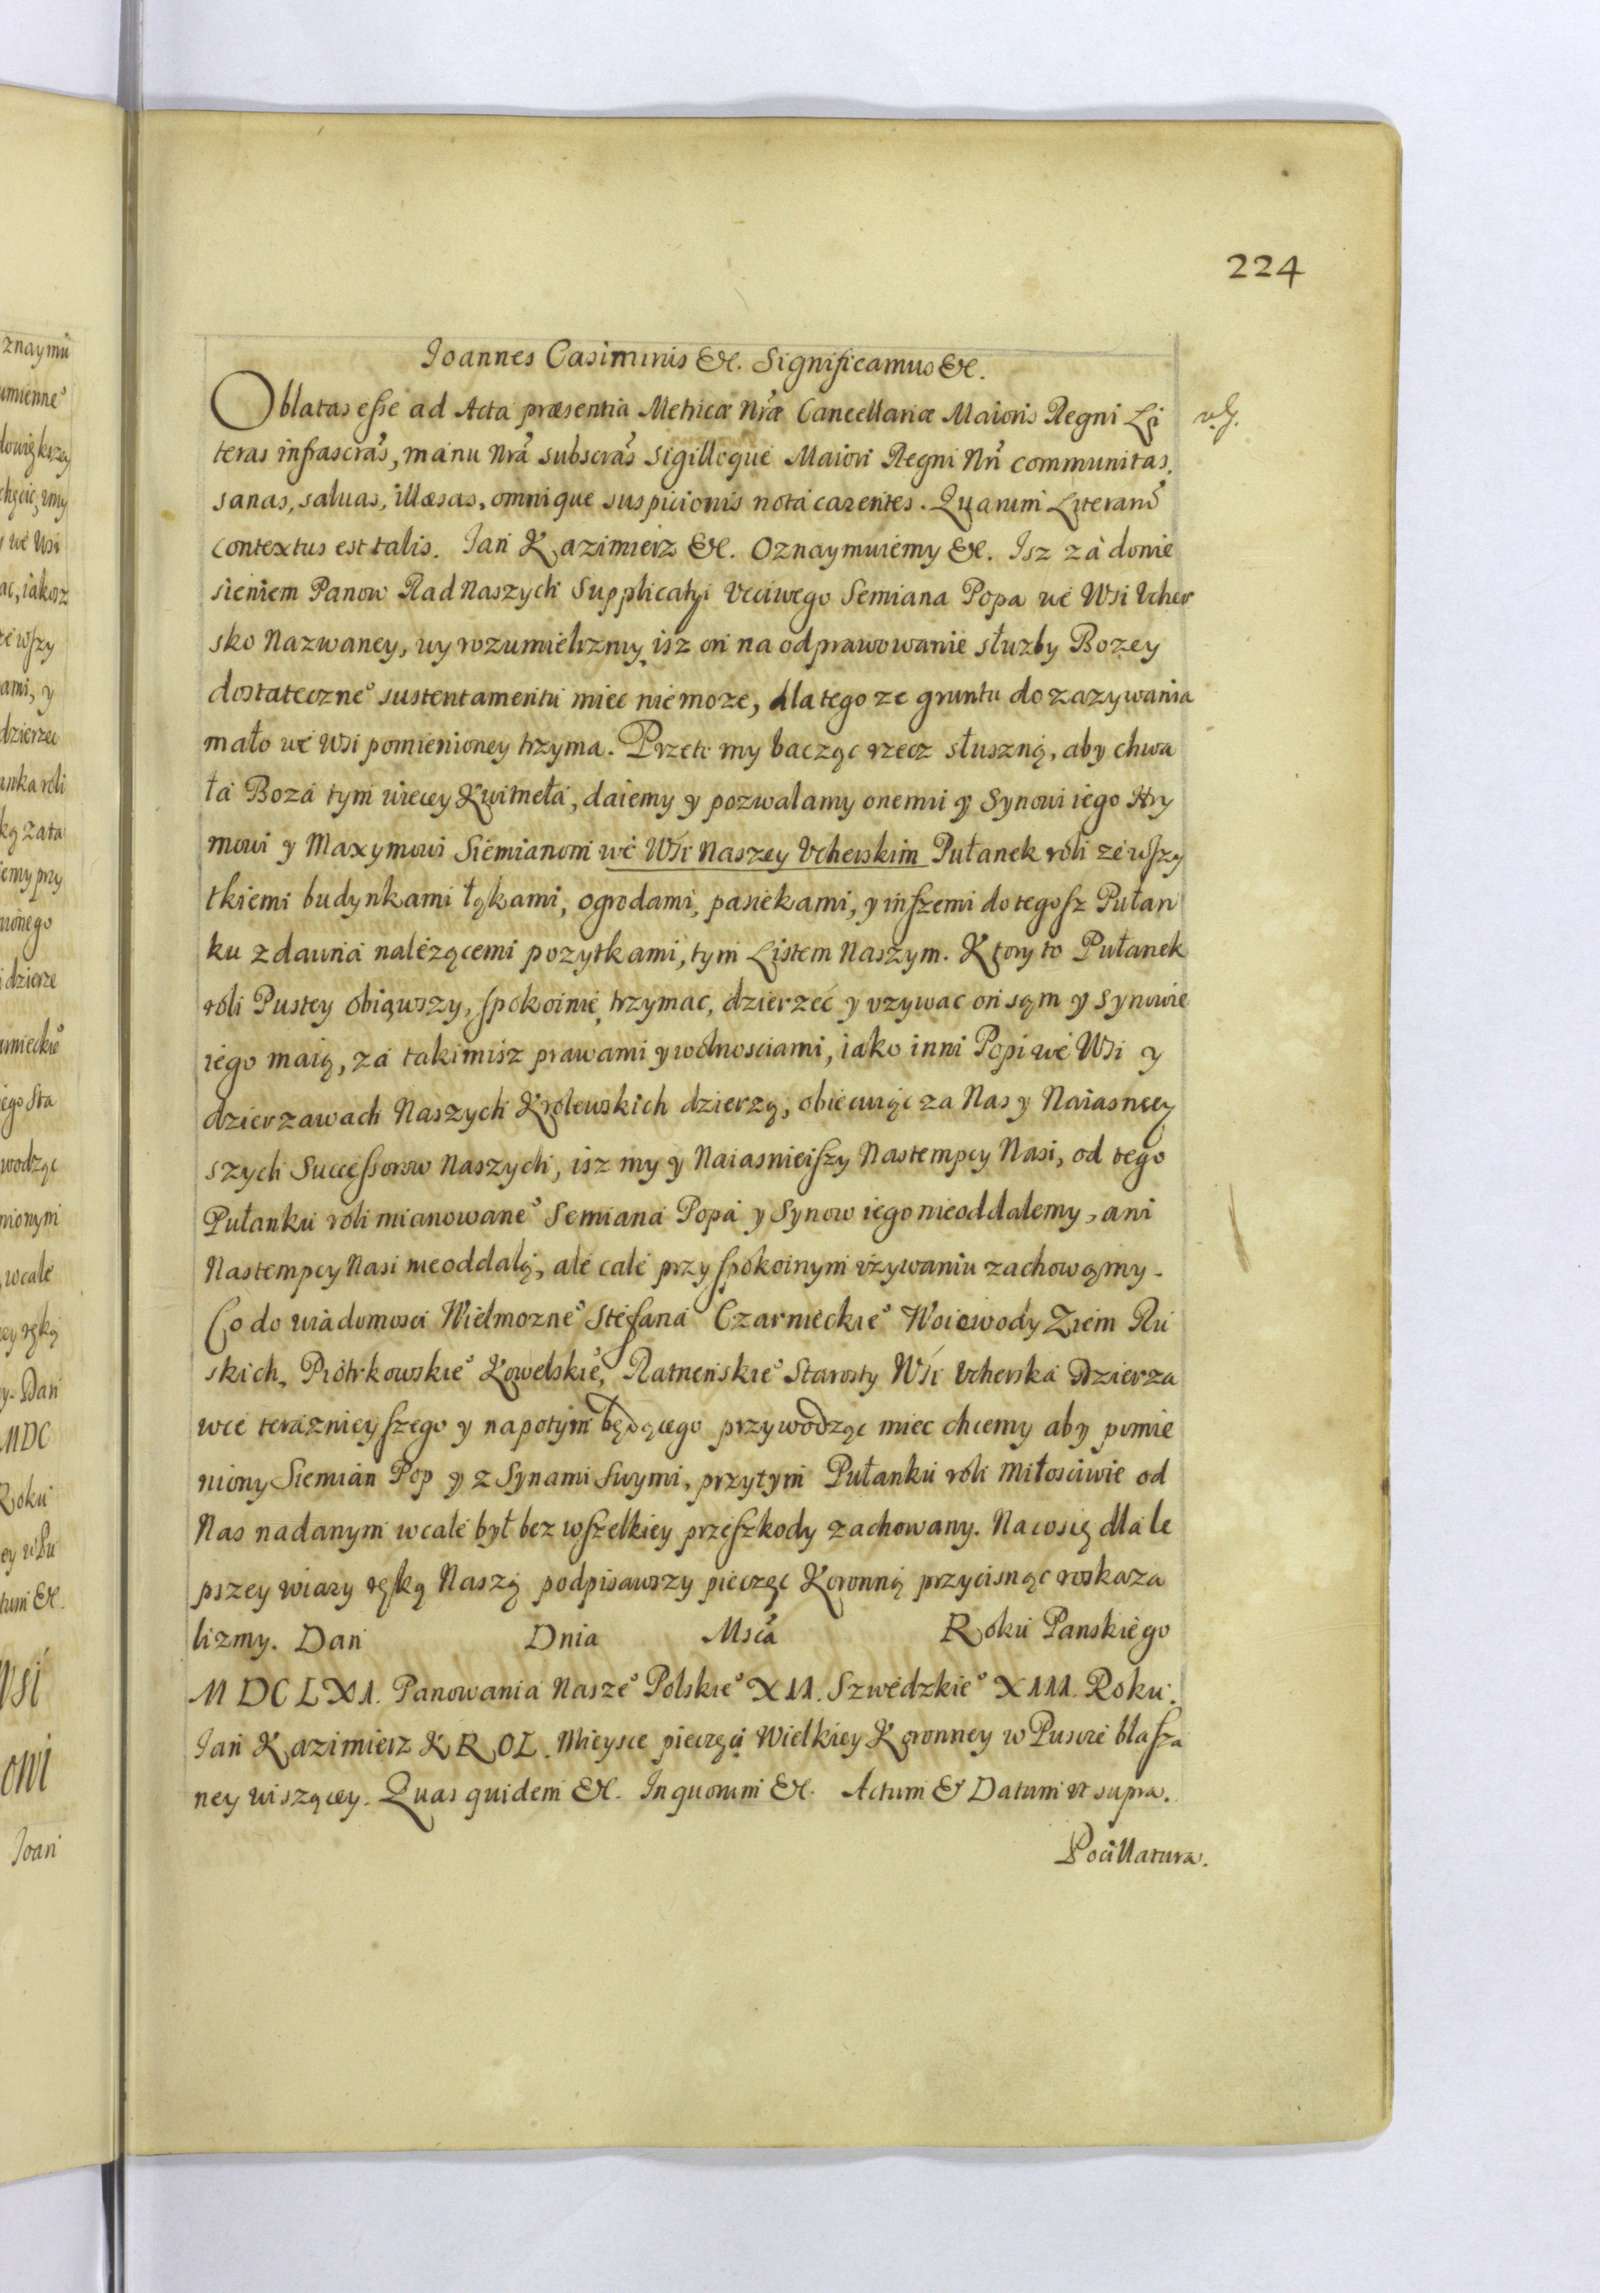 224
Joannes Casimirus &c. Significamus &c.
Oblatas esse ad Acta præsentia Metricæ Nræ Cancellariæ Maioris Regni Li
teras infrascras, manu Nra subscras Sigilloque Maiori Regni Nri communitas,
sanas, saluas, illæsas, omnique suspicionis nota carentes. Quarum Literarum
contextus est talis. Jan Kazimierz &c. Oznaymuiemy &c. Isz za donie
sieniem Panow Rad Naszych Supplicatyi Vcciwego Semiana Popa we Wsi Vcher
sko Nazwaney, wyrozumielizmy, isz on na odprawowanie słuzby Bozey
dostateczne° sustentamentu miec niemoze, dlatego ze gruntu do zazywania
mało we Wsi pomienioney trzyma. Przeto my bacząc rzecz słuszną, aby chwa
ła Boza tym wiecey kwitneła, daiemy y pozwalamy onemu y Synowi iego Hry
mowi y Maxymowi Siemianom we Wsi Naszey Vcherskim Pułanek roli ze wszy
tkiemi budynkami łąkami, ogrodami, pasiekami, y inszemi do tegosz Pułan
ku zdawna nalezącemi pozytkami, tym Listem Naszym. Ktory to Pułanek
roli Pustey obiąwszy, spokoinie trzymac, dzierzeć y vzywac on sąm y Synowie
iego maią, za takimisz prawami y wolnosciami, iako inni Popi we Wsi y
dzierzawach Naszych Krolewskich dzierzą, obiecuiąc za Nas y Naiasniey
szych Successorow Naszych, isz my y Naiasnieiszy Nastempcy Nasi, od tego
Pułanku roli mianowane° Semiana Popa y Synow iego nieoddalemy, ani
Nastempcy Nasi nieoddalą, ale cale przy spokoinym vzywaniu zachowąmy.
Co do wiadomosci Wielmozne° Stefana Czarnieckie° Woiewody Ziem Ru
skich, Piotrkowskie° Kowelskie°, Ratnenskie° Starosty Wsi Vcherska dzierza
wce teraznieyszego y napotym będącego przywodząc miec chcemy aby pomie
niony Siemian Pop y z Synami Swymi, przytym Pułanku roli Miłosciwie od
Nas nadanym wcale był bez wszelkiey przeszkody zachowany. Na co się dla le
pszey wiary ręką Naszą podpisawszy pieczęc Koronną przycisnąc roskaza
lizmy. Dan Dnia Msca Roku Panskiego
MDCLXI. Panowania Nasze° Polskie° XII. Szwedzkie° XIII. Roku.
Jan Kazimierz KROL. Mieysce pieczęci Wielkiey Koronney w Pusce blasza
ney wiszącey. Quas quidem &c. In quorum &c. Actum & Datum vt supra.